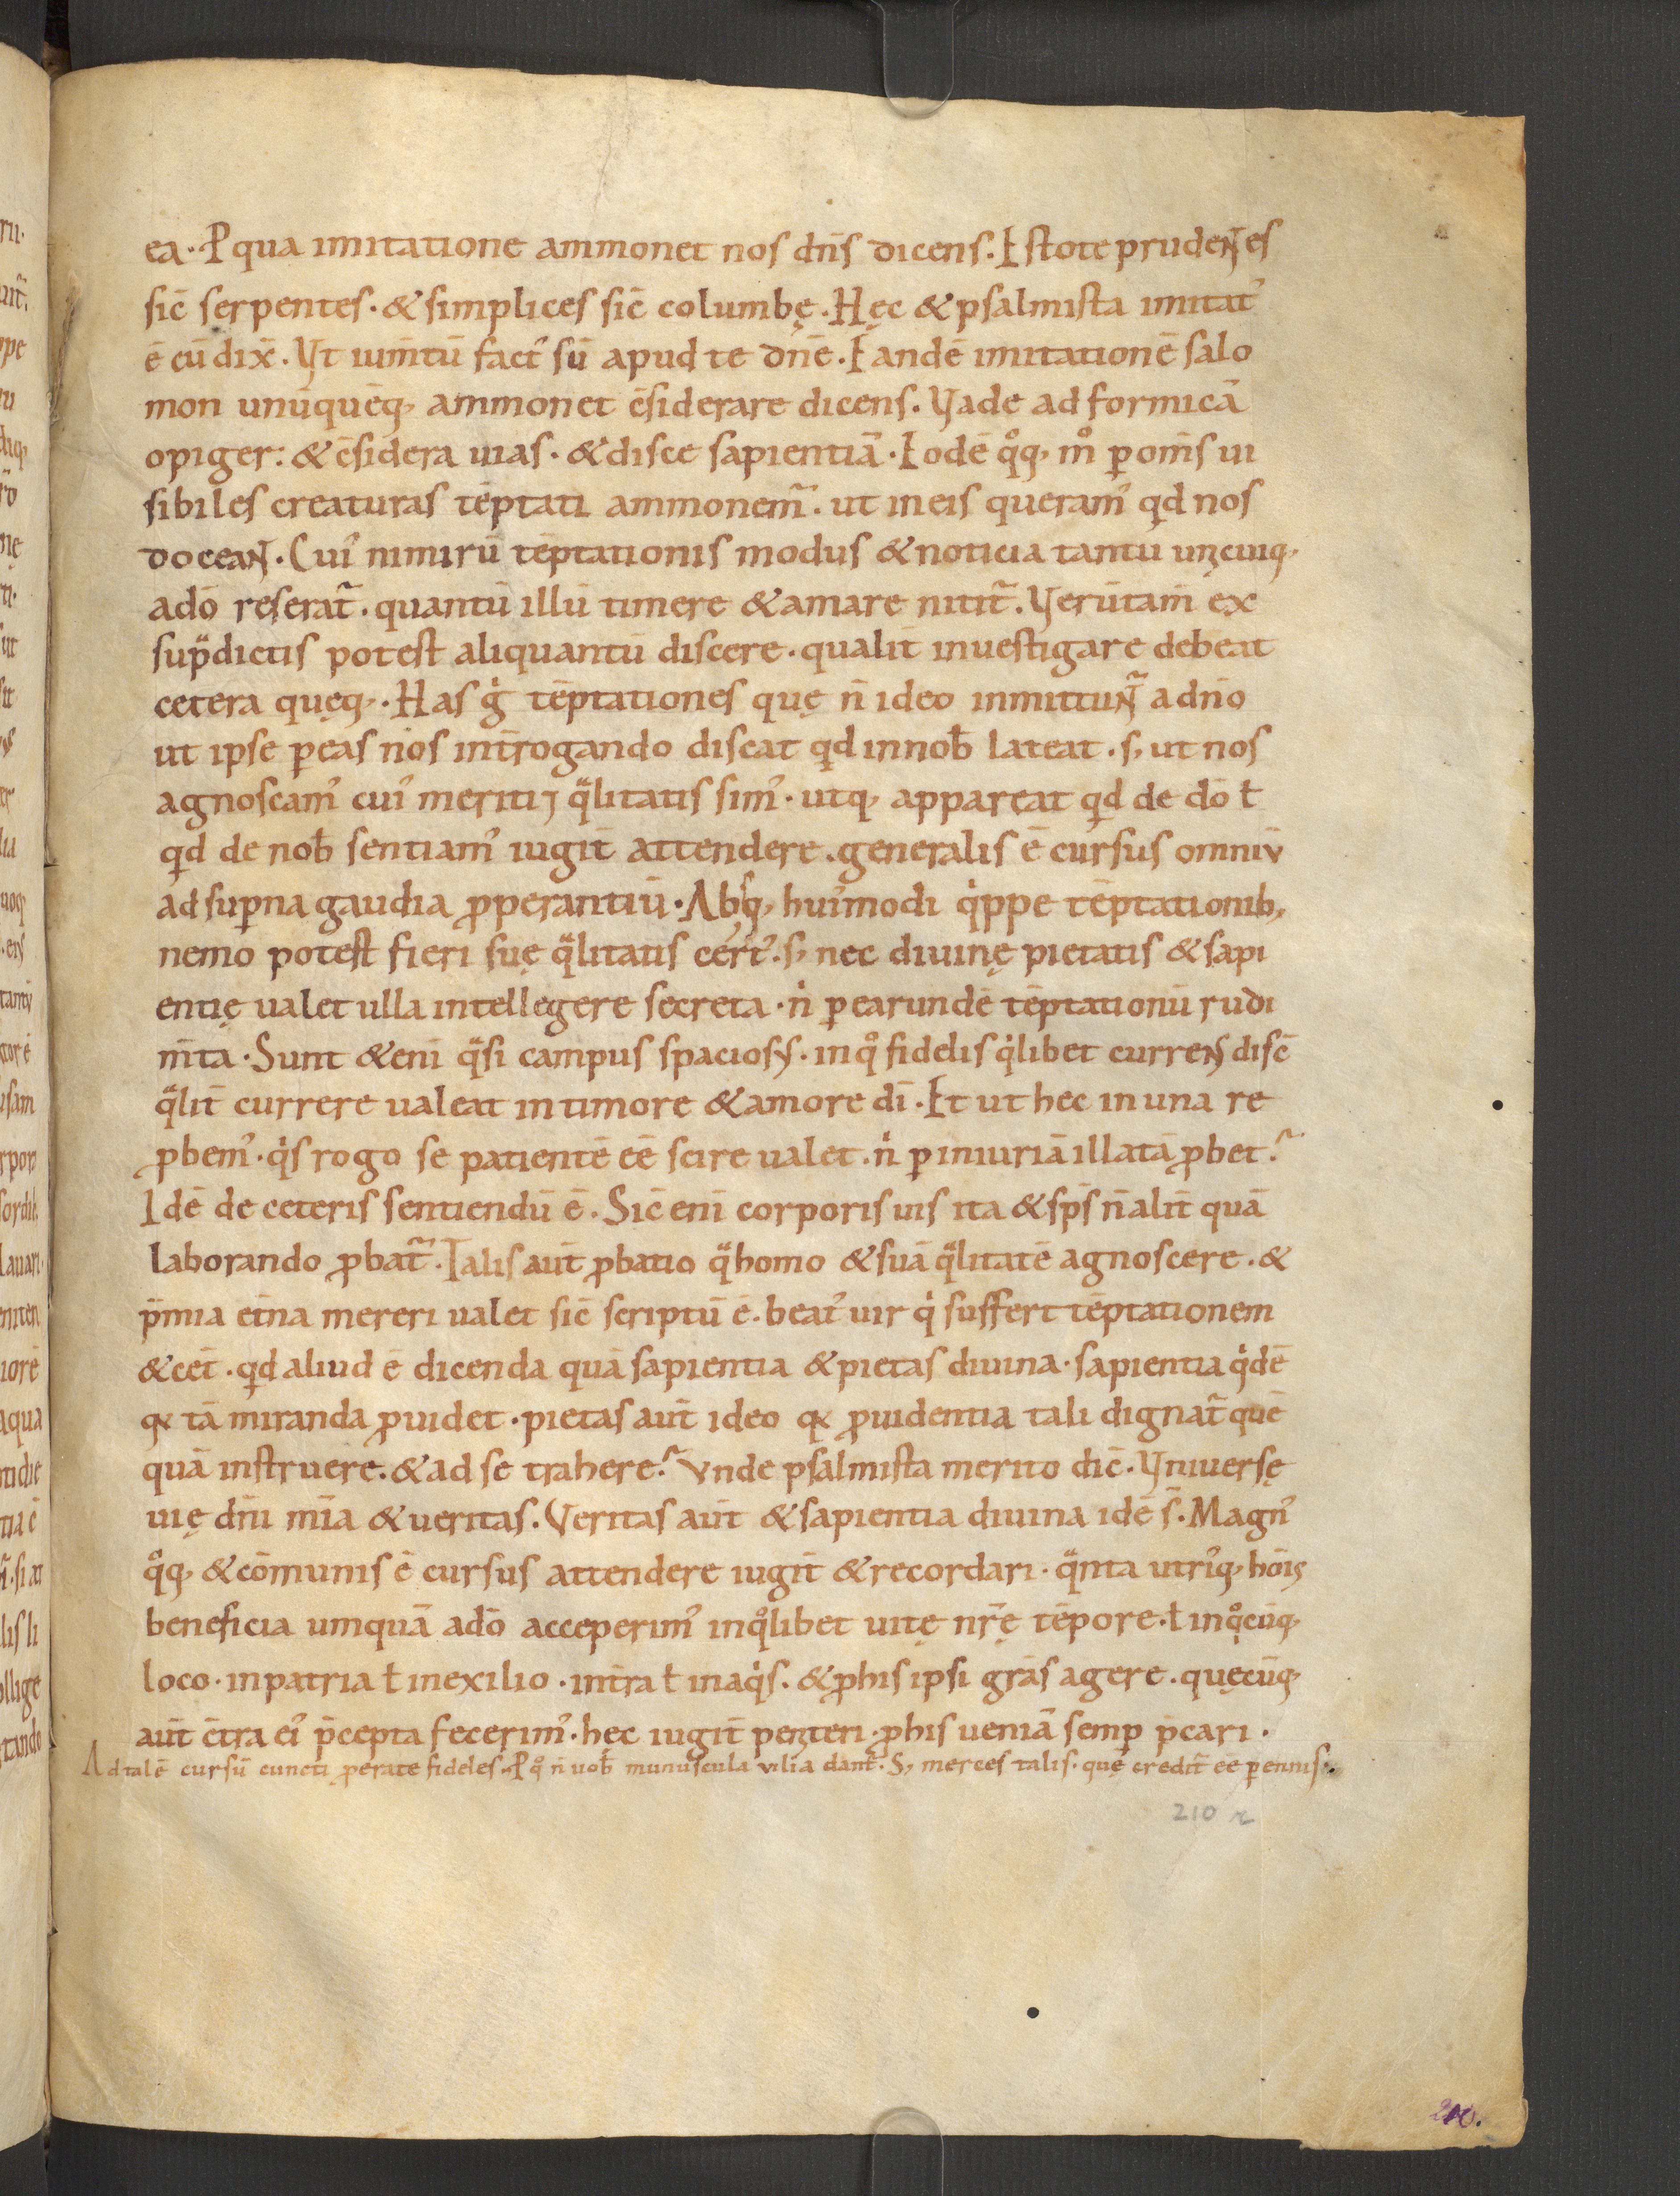 ea. P qua imitatione ammonet nos dn̄s dicens. Estote prudentes
sic̄ serpentes. & simplices sic̄ columbę. Hęc & psalmista imitat᾽
ē cū dix̄. Vt ium̄tū fact᾽ sū apud te dn̄e. Eandē imitationē salo
mon unūquēq, ammonet c̄siderare dicens. Vade ad formicā
o piger: & c̄sidera uias. & disce sapientiā. Eodē q̊q, m̊ ꝑ om̄s ui
sibiles creaturas tēptati ammonem̃. ut in eis queram᾽ qd nos
doceant. Cui᾽ nimirū tēptationis modus & noticia tantū unicuiq,
a dō reserat̃. quantū illū timere & amare nitit̃. Verūtam̄ ex
sup̈dictis potest aliquantū discere. qualit̄ inuestigare debeat
cetera quęq,. Has g̊ tēptationes quę n̄ ideo inmittunt̃ a dn̄o
ut ipse ꝑ eas nos int̄rogando discat qd in nob̄ lateat. s, ut nos
agnoscam᾽ cui᾽ meriti ⁊ q̈litatis sim᾽. utq, appareat qd de dō ł
qd de nob̄ sentiam᾽ iugit̄ attendere. generalis ē cursus omniū
ad suꝑna gaudia ꝓperantiū. Absq, hui᾽modi q̇ppe tēptationib,
nemo potest fieri suę q̈litatis cert᾽. s, nec diuinę pietatis & sapi
entię ualet ulla intellegere secreta. n̊ ꝑ earundē tēptationū rudi
m̄ta. Sunt & eni q̈si campus spaciosus. in q̊ fidelis q̇libet currens disc̄
q̈lit̄ currere ualeat in timore & amore dī. Et ut hec in una re
ꝓbem᾽. q̇s rogo se patientē eē scire ualet. n̊ ꝑ iniuriā illatā ꝓbet.
Idē de ceteris sentiendū ē. Sic̄ eni corporis uis ita & sp̄s n̄ alit̄ quā
laborando ꝓbat̃. Talis aut̄ ꝓbatio q̈ homo & suā q̈litatē agnoscere. &
p̄mia et̄na mereri ualet sic̄ scriptū ē. beat᾽ uir q̇ suffert tēptationem
& cet̄. qd aliud ē dicenda quā sapientia & pietas diuina. sapientia q̇dē
qꝛ tā miranda ꝓuidet. pietas aut̄ ideo qꝛ ꝓuidentia tali dignat̃ quē
quā instruere. & ad se trahere. Vnde psalmista merito dic̄. Vniuersę
uię dn̄i mīa & ueritas. Veritas aut̄ & sapientia diuina idē s̄. Magn᾽
q̊q, & cōmunis ē cursus attendere iugit̄ & recordari. q̈nta utri᾽q, hōis
beneficia umquā a dō acceperim᾽ in q̊libet uitę nr̄ę tēpore. ł in q̊cūq,
loco. in patria ł in exilio. in t̄ra ł in aq̇s. & ꝓ his ipsi grās agere. quęcūq,
aut̄ c̄tra ei᾽ p̄cepta fecerim᾽. hec iugit̄ penit̄eri. ꝓ his ueniā semꝑ p̄cari.
Ad talē cursū cuncti ꝓperate fideles. P q̊ n̄ uob̄ munuscula uilia dant̃. S, merces talis. quę credit̃ eē ꝑennis.
210 r
210.